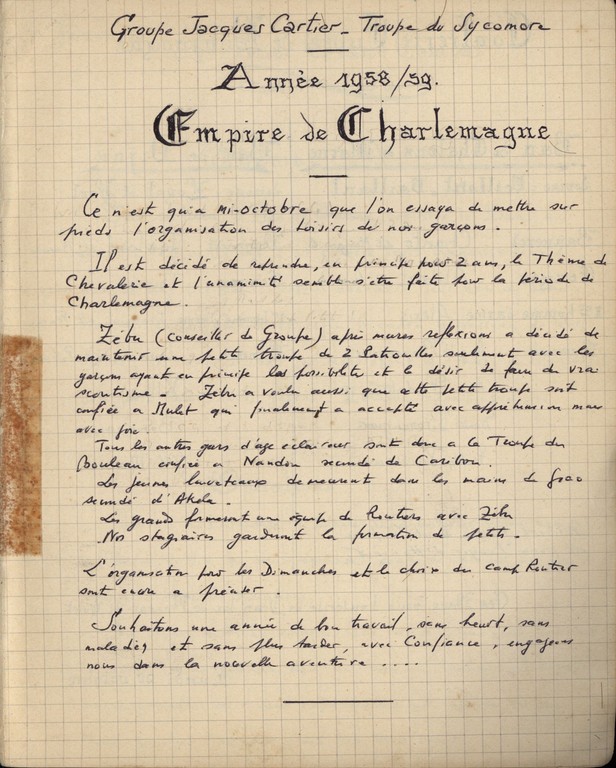 Groupe Jacques Cartier - Troupe du Sycomore
Année 1958/59.
Empire de Charlemagne
Ce n'est qu'a mi-octobre que l'on essaya de mettre sur
pieds l'organisation des loisirs de nos garçons.
Il est décidé de reprendre, en principe pour 2 ans, le Thème de
Chevalerie et l'unanimité semble s'être faite pour la période de
Charlemagne.
Zébu (conseiller de Groupe) après mures reflexions a décidé de
maintenir une petite troupe de 2 Patrouilles seulement avec les
garçons ayant en principe les possibilités et le désir de faire du vrai
scoutisme. Zébu a voulu aussi que cette petite troupe soit
confiée a Mulet qui finalement a accepté avec appréhension mais
avec joie.
Tous les autres gars d'age éclaireur sont donc a la Troupe du
Bouleau confiée a Nandou secondé de Caribou.
Les jeunes louveteaux demeurent dans les mains de
secondé d'Akela.
Les grands formeront une équipe de Routiers avec Zébu
Nos stagiaires garderont la formation de petits.
L'organisation pour les Dimanches et le choix du camp Routier
sont encore a préciser.
Souhaitons une année de bon travail, sans heurt, sans
maladies et sans plus tarder, avec Confiance, engageons
nous dans la nouvelle aventure ....